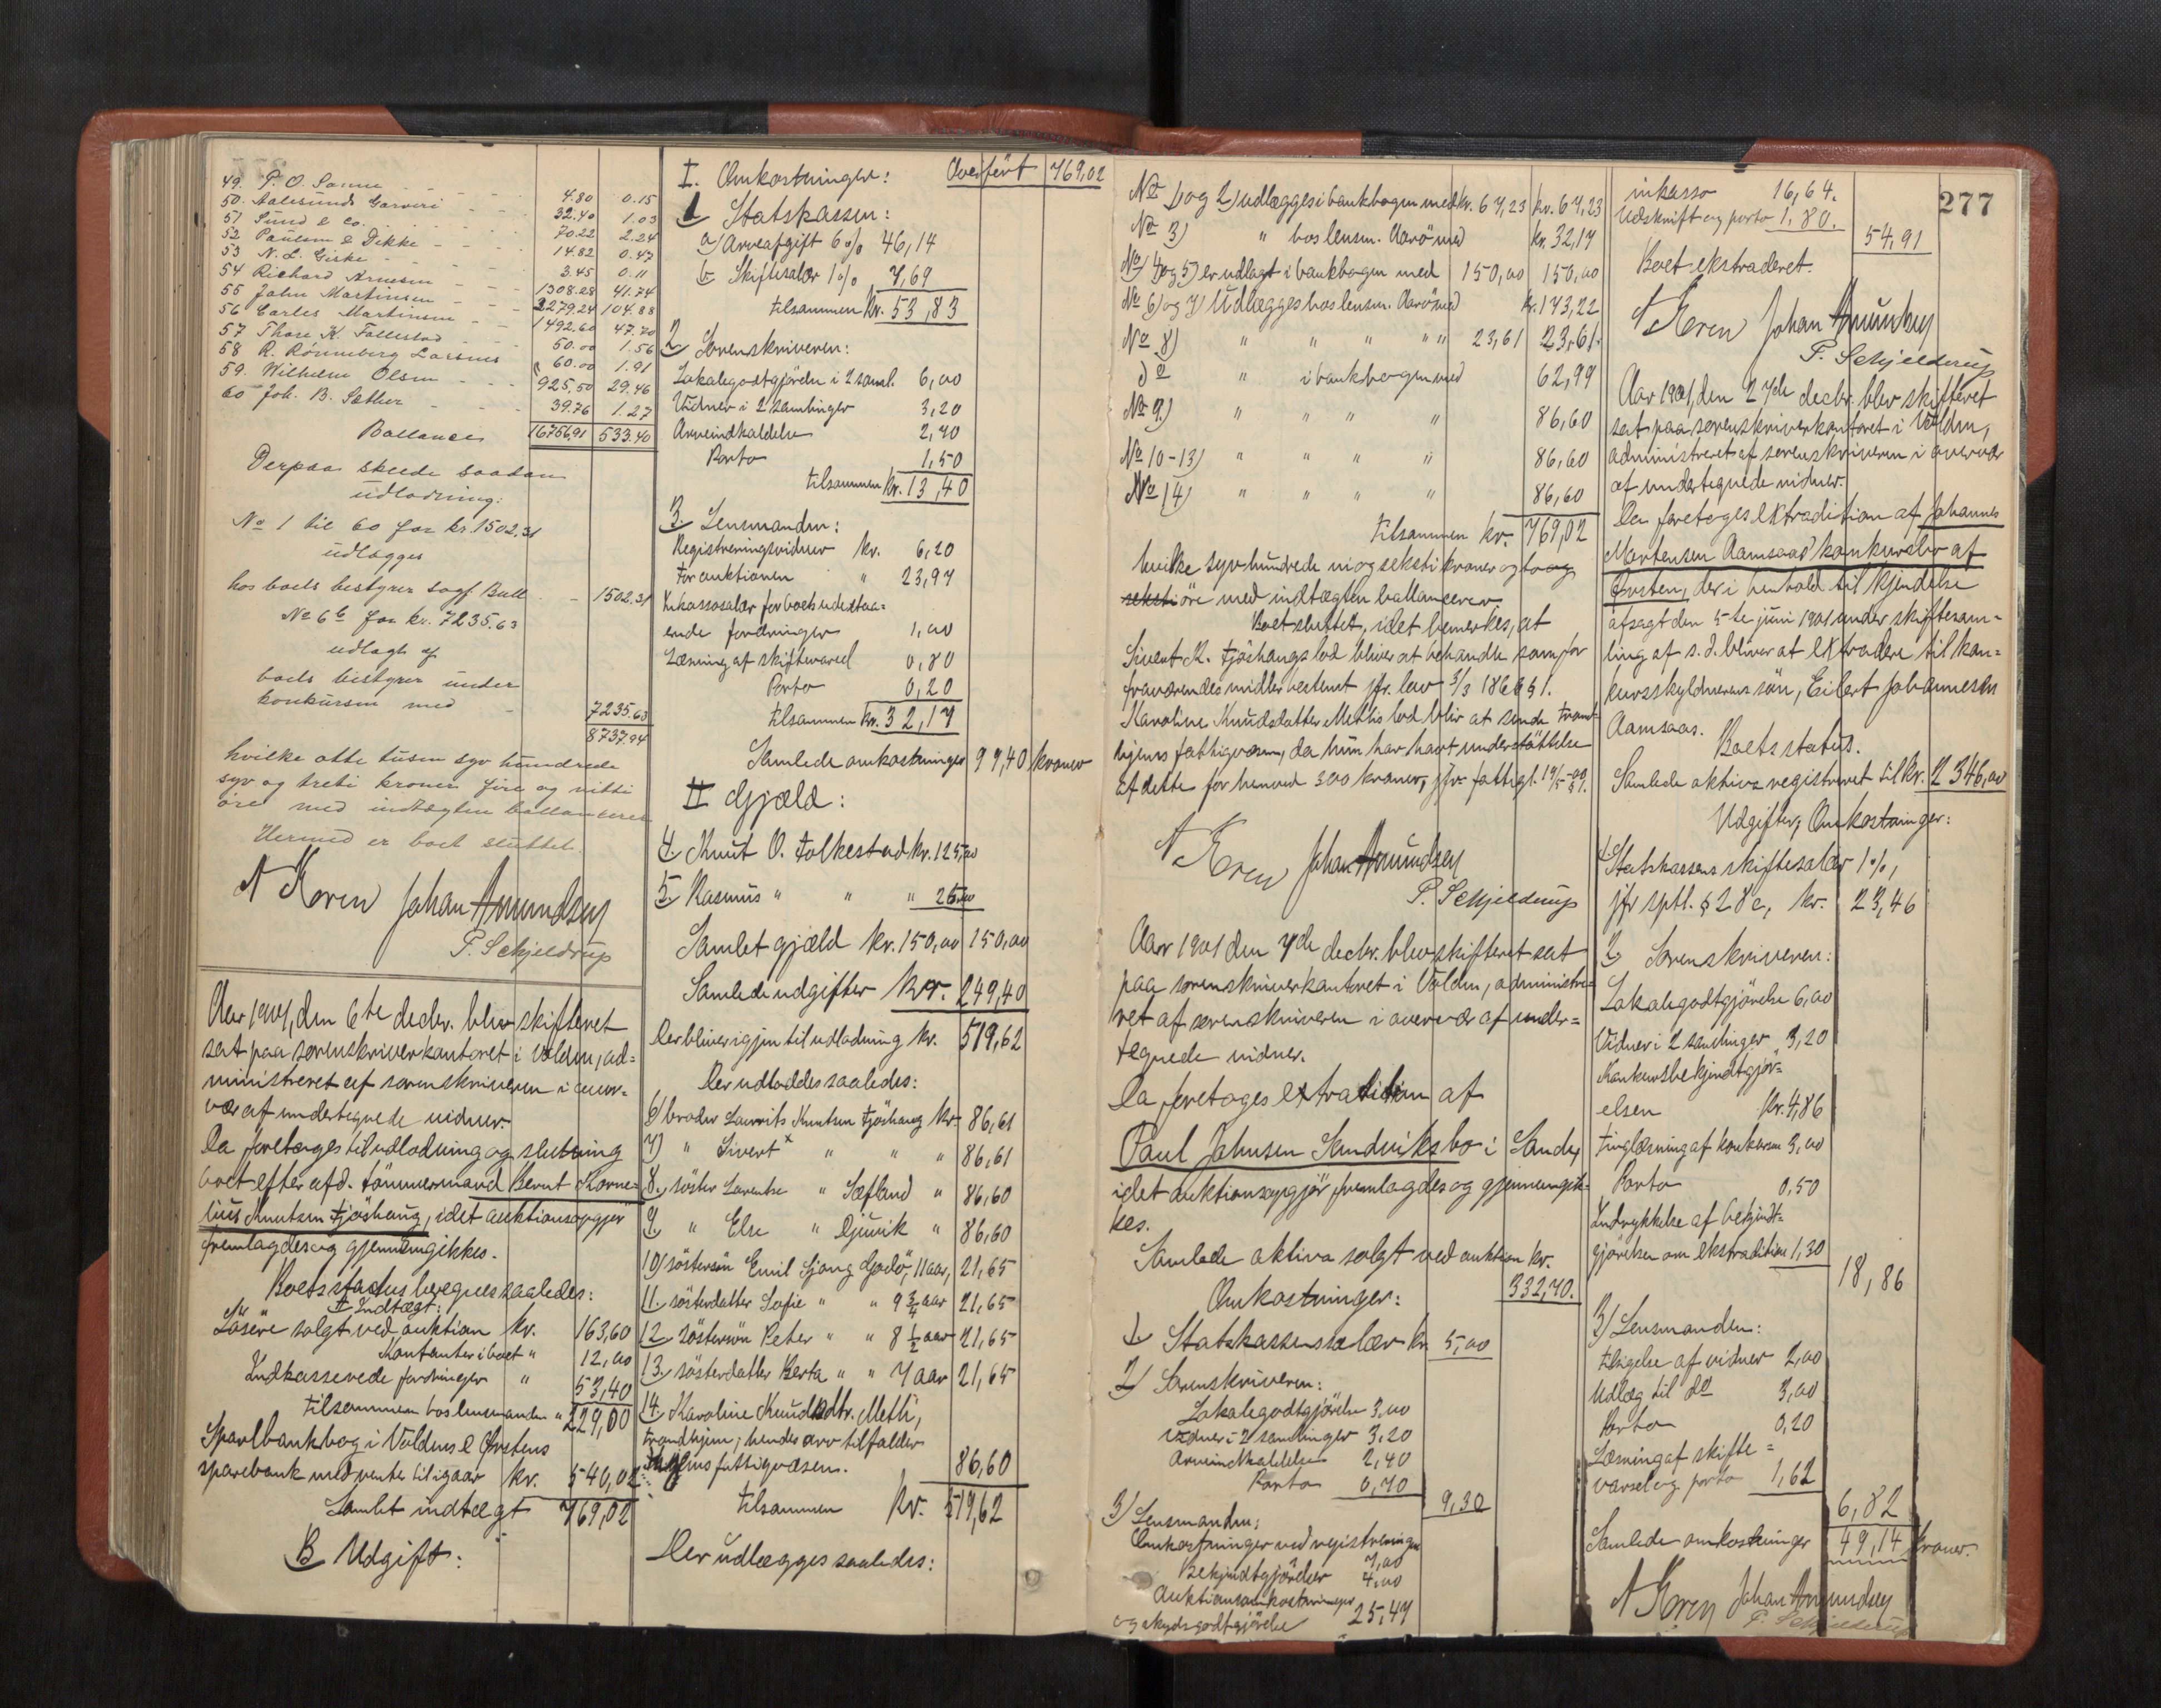 49. P. O. Sanne 4.80 0.15
50. Aalesunds Garveri 32.40 1.03
51 Sund & Co. 70.22 2.24
52 Paulsen & Dekke 14.82 0.47
53 N. L. Giske 3.45 0.11
54 Richard Arnesen 1308.28 41.74
55 John Martinsen 3279.24 104.88
56 Carles Martinsen 1492.60 47.70
57 Thore K. Follestad 50.00 1.56
58 R. Rönneberg Larsnes 60.00 1.91
59. Wilhelm Olsen 925.50 29.46
60 Joh. B. Sæther 39.76 1.27
Ballance 16756.91 533.40
Derpaa skeede saadan
udlodning:
No 1 til 60 faar kr. 1502.31
udlægges
hos boets bestyrer sagf. Bull 1502.31
No 6b faar kr. 7235.63
udlagt af
boets bestyrer under
konkursen med 7235.63
8737.94
hvilke otte tusen syv hundrede
syv og treti kroner fire og nitti
öre med indtægten ballancerer
Hermed er boet sluttet.
N Koren Johan Amundsen
P. Schjelderup
Aar 1901, den 6te decbr. blev skifteret
sat paa sorenskriverkontoret i Volden, ad=
ministreret af sorenskriveren i over=
vær af undertegnede vidner.
Da foretoges til udlodning og slutning
boet efter afd. tömmermand Bernt Korne=
lius Knutsen Fjöshaug, idet auktionsopgjör
fremlagdes og gjennemgikkes.
Boets status beregnes saaledes:
A Indtægt:
Lösöre solgt ved auktion kr. 163,60
Kontanter i boet " 12,00
Indkasserede fordringer " 53,40
tilsammen hos lensmanden " 229,00
Sparebankbog i Voldens & Ørstens
sparebank med renter til igaar kr. 540,02
Samlet indtægt 769,02
B Udgift:
I. Omkostninger: Overfört 769,02
1 Statskassen:
a) Arveafgift 6% 46,14
b Skiftesalær 1% 7,69
tilsammen Kr. 53,83
2 Sorenskriveren:
Lokalegodtgjörelse i 2 saml. 6,00
Vidner i 2 samlinger 3,20
Arveindkaldelse 2,40
Porto 1,50
tilsammen Kr. 13,40
3. Lensmanden:
Registreringsvidner kr. 6,20
For auktionen " 23,97
Inkassosalær for boets udestaa=
ende fordringer 1,00
Læsning af skiftevarsel 0,80
Porto 0,20
tilsammen kr. 32,17
Samlede omkostninger 99,40 kroner
II Gjæld:
4. Knut O. Folkestad kr. 125,00
5 Rasmus " " " 25,00
Samlet gjæld kr. 150,00 150,00
Samlede udgifter kr. 249,40
Der bliver igjen til udlodning kr. 519,62
Der udloddes saaledes:
6) broder Laurits Knutsen Fjöshaug kr. 86,61
7) " Sivert x " " " 86,61
8. söster Laurentse " Sæfland " 86,60
9. " Else " Djuvik " 86,60
10) söstersön Emil Sjong Godö, 11 aar, 21,65
11. sösterdatter Sofie " " 9 3/4 aar 21,65
12 söstersön Peter " " 8 1/2 aar 21,65
13. sösterdatter Berta " " 7 aar 21,65
14. Karoline Knudsdtr. Metli,
Trondhjem; hendes arv tilfalder
fattigvæsen. 86,60
tilsammen kr. 519,62
Der udlægges saaledes:
No 1) og 2) udlægges i bankbogen med kr. 67,23 kr. 67,23
No 3) " hos lensm. Aarö med kr. 32,17
No 4) og 5) er udlagt i bankbogen med 150,00 150,00
No 6) og 7) Udlægges hos lensm. Aarö med kr. 173,22
No 8) " " " " " 23,61 23,61
do " i bankbogen med 62,99
No 9.) " " " " 86,60
No 10-13) " " " " 86,60
No 14) " " " " 86,60
tilsammen kr. 769,02
hvilke syvhundrede niogseksti kroner og to
öre med indtægten ballancerer.
Boet sluttet, idet bemerkes, at
Sivert K. Fjöshaugs lod bliver at behandle som for
fraværendes midler bestemt jfr. lov 3/3 1866 § 1.
Karoline Knudsdatter Metlis lod blir at sende Trond=
hjems fattigvæsen, da hun har havt understöttelse
af dette for henved 300 kroner, jfr. fattigl. 19/5-00 § .
N Koren Johan Amundsen
P. Schjelderup
Aar 1901 den 7de decbr. blev skifteret sat
paa sorenskriverkontoret i Volden, administre=
ret af sorenskriveren i overvær af under=
tegnede vidner.
Da foretoges extradition af
Paul Johnsen Sandviks bo i Sande,
idet auktionsopgjör fremlagdes og gjennemgik=
kes.
Samlede aktiva solgt ved auktion kr.
332,70.
Omkostninger:
1. Statskassens salær kr. 5,00
2) Sorenskriveren:
Lokalegodtgjörelse 3,00
vidner i 2 samlinger 3,20
Arveindkaldelse 2,40
Porto 0,70
9,30
3) Lensmanden:
Omkostninger ved registreringen
7,00
Bekjendtgjörelser 4,00
Auktionsomkostninger
og skydsgodtgjörelse 25,47
277
inkasso 16,64.
Udskrift og porto 1,80.
54,91
Boet ekstraderet.
N Koren Johan Amundsen
P. Schjelderup
Aar 1901, den 27de decbr. blev skifteret
sat paa sorenskriverkontoret i Volden,
administreret af sorenskriveren i overvær
af undertegnede vidner.
Da foretoges extradition af Johannes
Martensen Aamsaas' konkursbo af
Ørsten, der i henhold til kjendelse
afsagt den 5te juni 1901 under skiftesam=
ling af s. d. bliver at extradere til kon=
kursskyldnerens sön, Eilert Johannesen
Aamsaas.
Boets status.
Samlede aktiva registreret til kr. 2346,00
Udgifter, Omkostninger:
1. Statskassens skiftesalær 1%,
jfr sptl. § 28 c, kr. 23,46
2. Sorenskriveren:
Lokalegodtgjörelse 6,00
Vidner i 2 samlinger 3,20
Konkursbekjendtgjör=
elsen kr. 4,86
tinglæsning af konkursen 3,00
Porto 0,50
Indrykkelse af bekjendt=
gjörelsen om ekstradition 1,30
18,86
3) Lensmanden:
tilsigelse af vidner 2,00
Udlæg til do 3,00
Porto 0,20
Læsning af skifte=
varsel og porto 1,62
6,82
Samlede omkostninger 49,14 kroner.
N Koren Johan Amundsen
P. Schjelderup